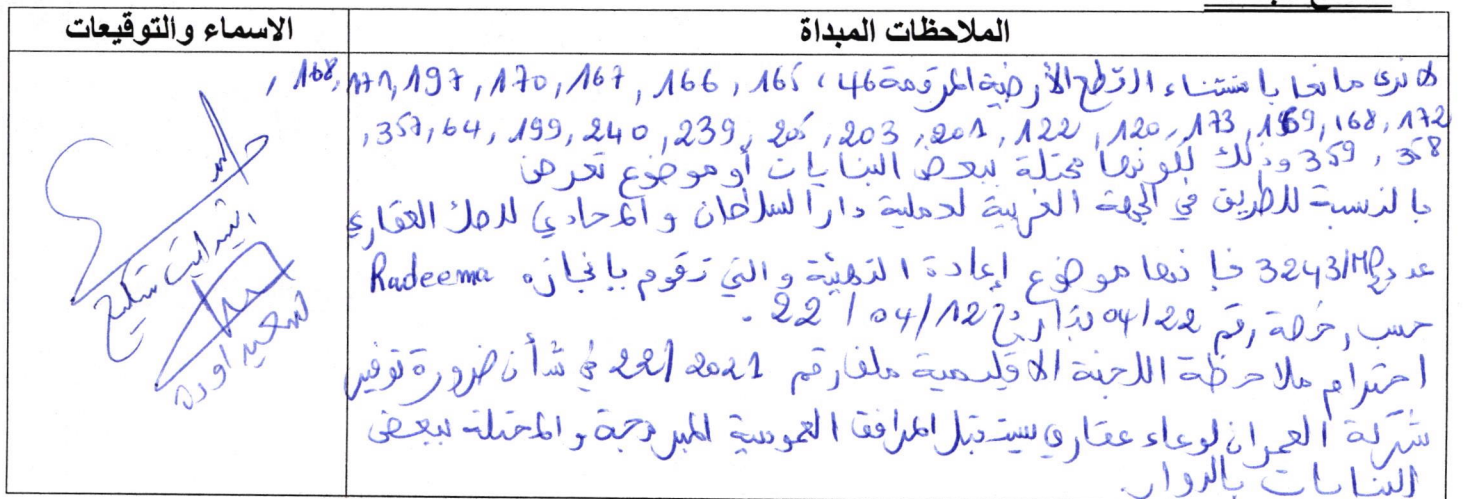 الاسماء والتوقيعات
الملاحظات المبداة
لا نرى مانعا باستثناء القطع الأرضية المرقومة 46، 165, 166, 167, 170, 197, 171, 168,
172, 168, 169, 173, 120, 122, 201, 203, 205, 239, 240, 199, 64, 357,
358, 359 وذلك لكونها محتلة ببعض البنايات أو موضوع تعرض
بالنسبة للطريق في الجهة الغربية لعملية دار السلطان و المحادي للملك العقاري
عدد 3243/ فإنها موضوع إعادة التهيئة والتي تقوم بإنجازه Radeema
حسب رخصة رقم 04/22 بتاريخ 22/04/12.
احترام ملاحظة اللجنة الاقليمية ملف رقم 22/2021 في شأن ضرورة توفير
شركة العمران لوعاء عقاري يستقبل المرافق العمومية المبرمجة و المحتلة ببعض
البنايات بالدوار.